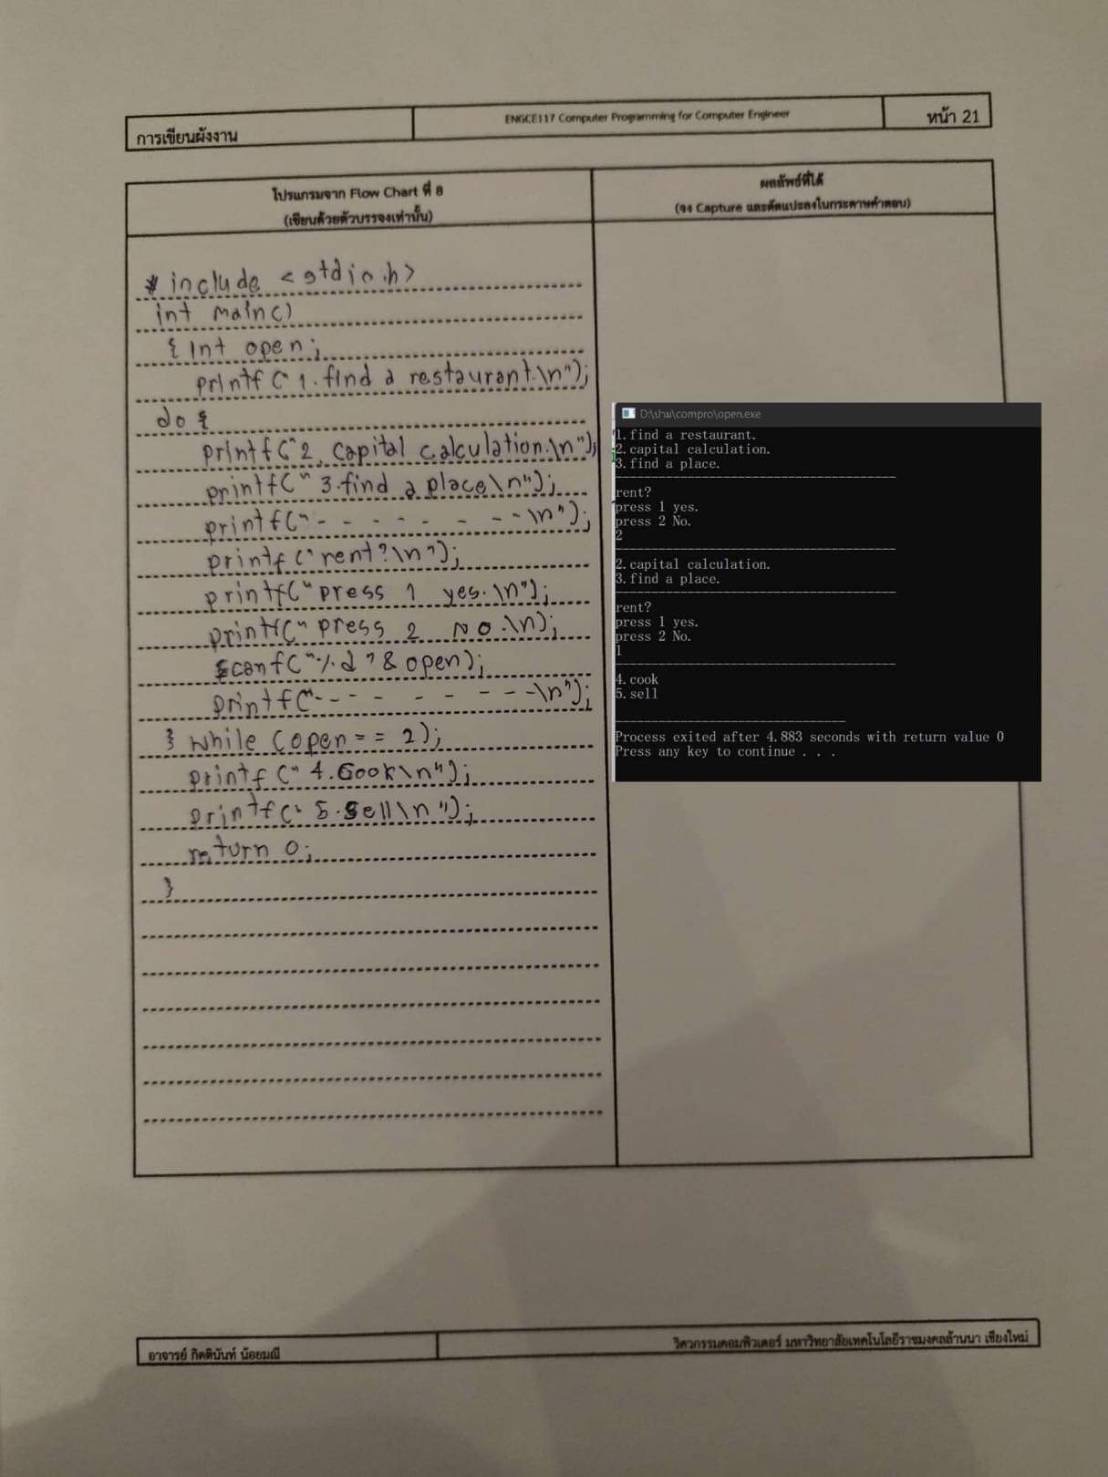 การเขียนผังงาน
ENGCE117 Computer Programming for Computer Engineer
หน้า 21
โปรแกรมจาก Flow Chart ที่ 8
(เขียนด้วยตัวบรรจงเท่านั้น)
ผลลัพธ์ที่ได้
(จง Capture และตัดแปะลงในกระดาษคำตอบ)
# include <stdio.h>
int main()
{ int open;
printf ("1.find a restaurant.\n");
do {
printf("2. capital calculation.\n");
printf(" 3.find a place\n");
printf("- - - - - - - -\n");
printf ("rent?\n");
printf("press 1 yes.\n");
printf("press 2 No.\n);
scanf("%d"&open);
printf("- - - - - - - - -\n");
} while (open == 2);
printf (" 4.Cook\n");
printf(" 5.sell\n");
return 0;
}
D:\shu\compro\open.exe
1.find a restaurant.
2.capital calculation.
3.find a place.
----------------------------------------
rent?
press 1 yes.
press 2 No.
2
----------------------------------------
2.capital calculation.
3.find a place.
----------------------------------------
rent?
press 1 yes.
press 2 No.
1
----------------------------------------
4.cook
5.sell
--------------------------------
Process exited after 4.883 seconds with return value 0
Press any key to continue . . .
อาจารย์ กิตตินันท์ น้อยมณี
วิศวกรรมคอมพิวเตอร์ มหาวิทยาลัยเทคโนโลยีราชมงคลล้านนา เชียงใหม่